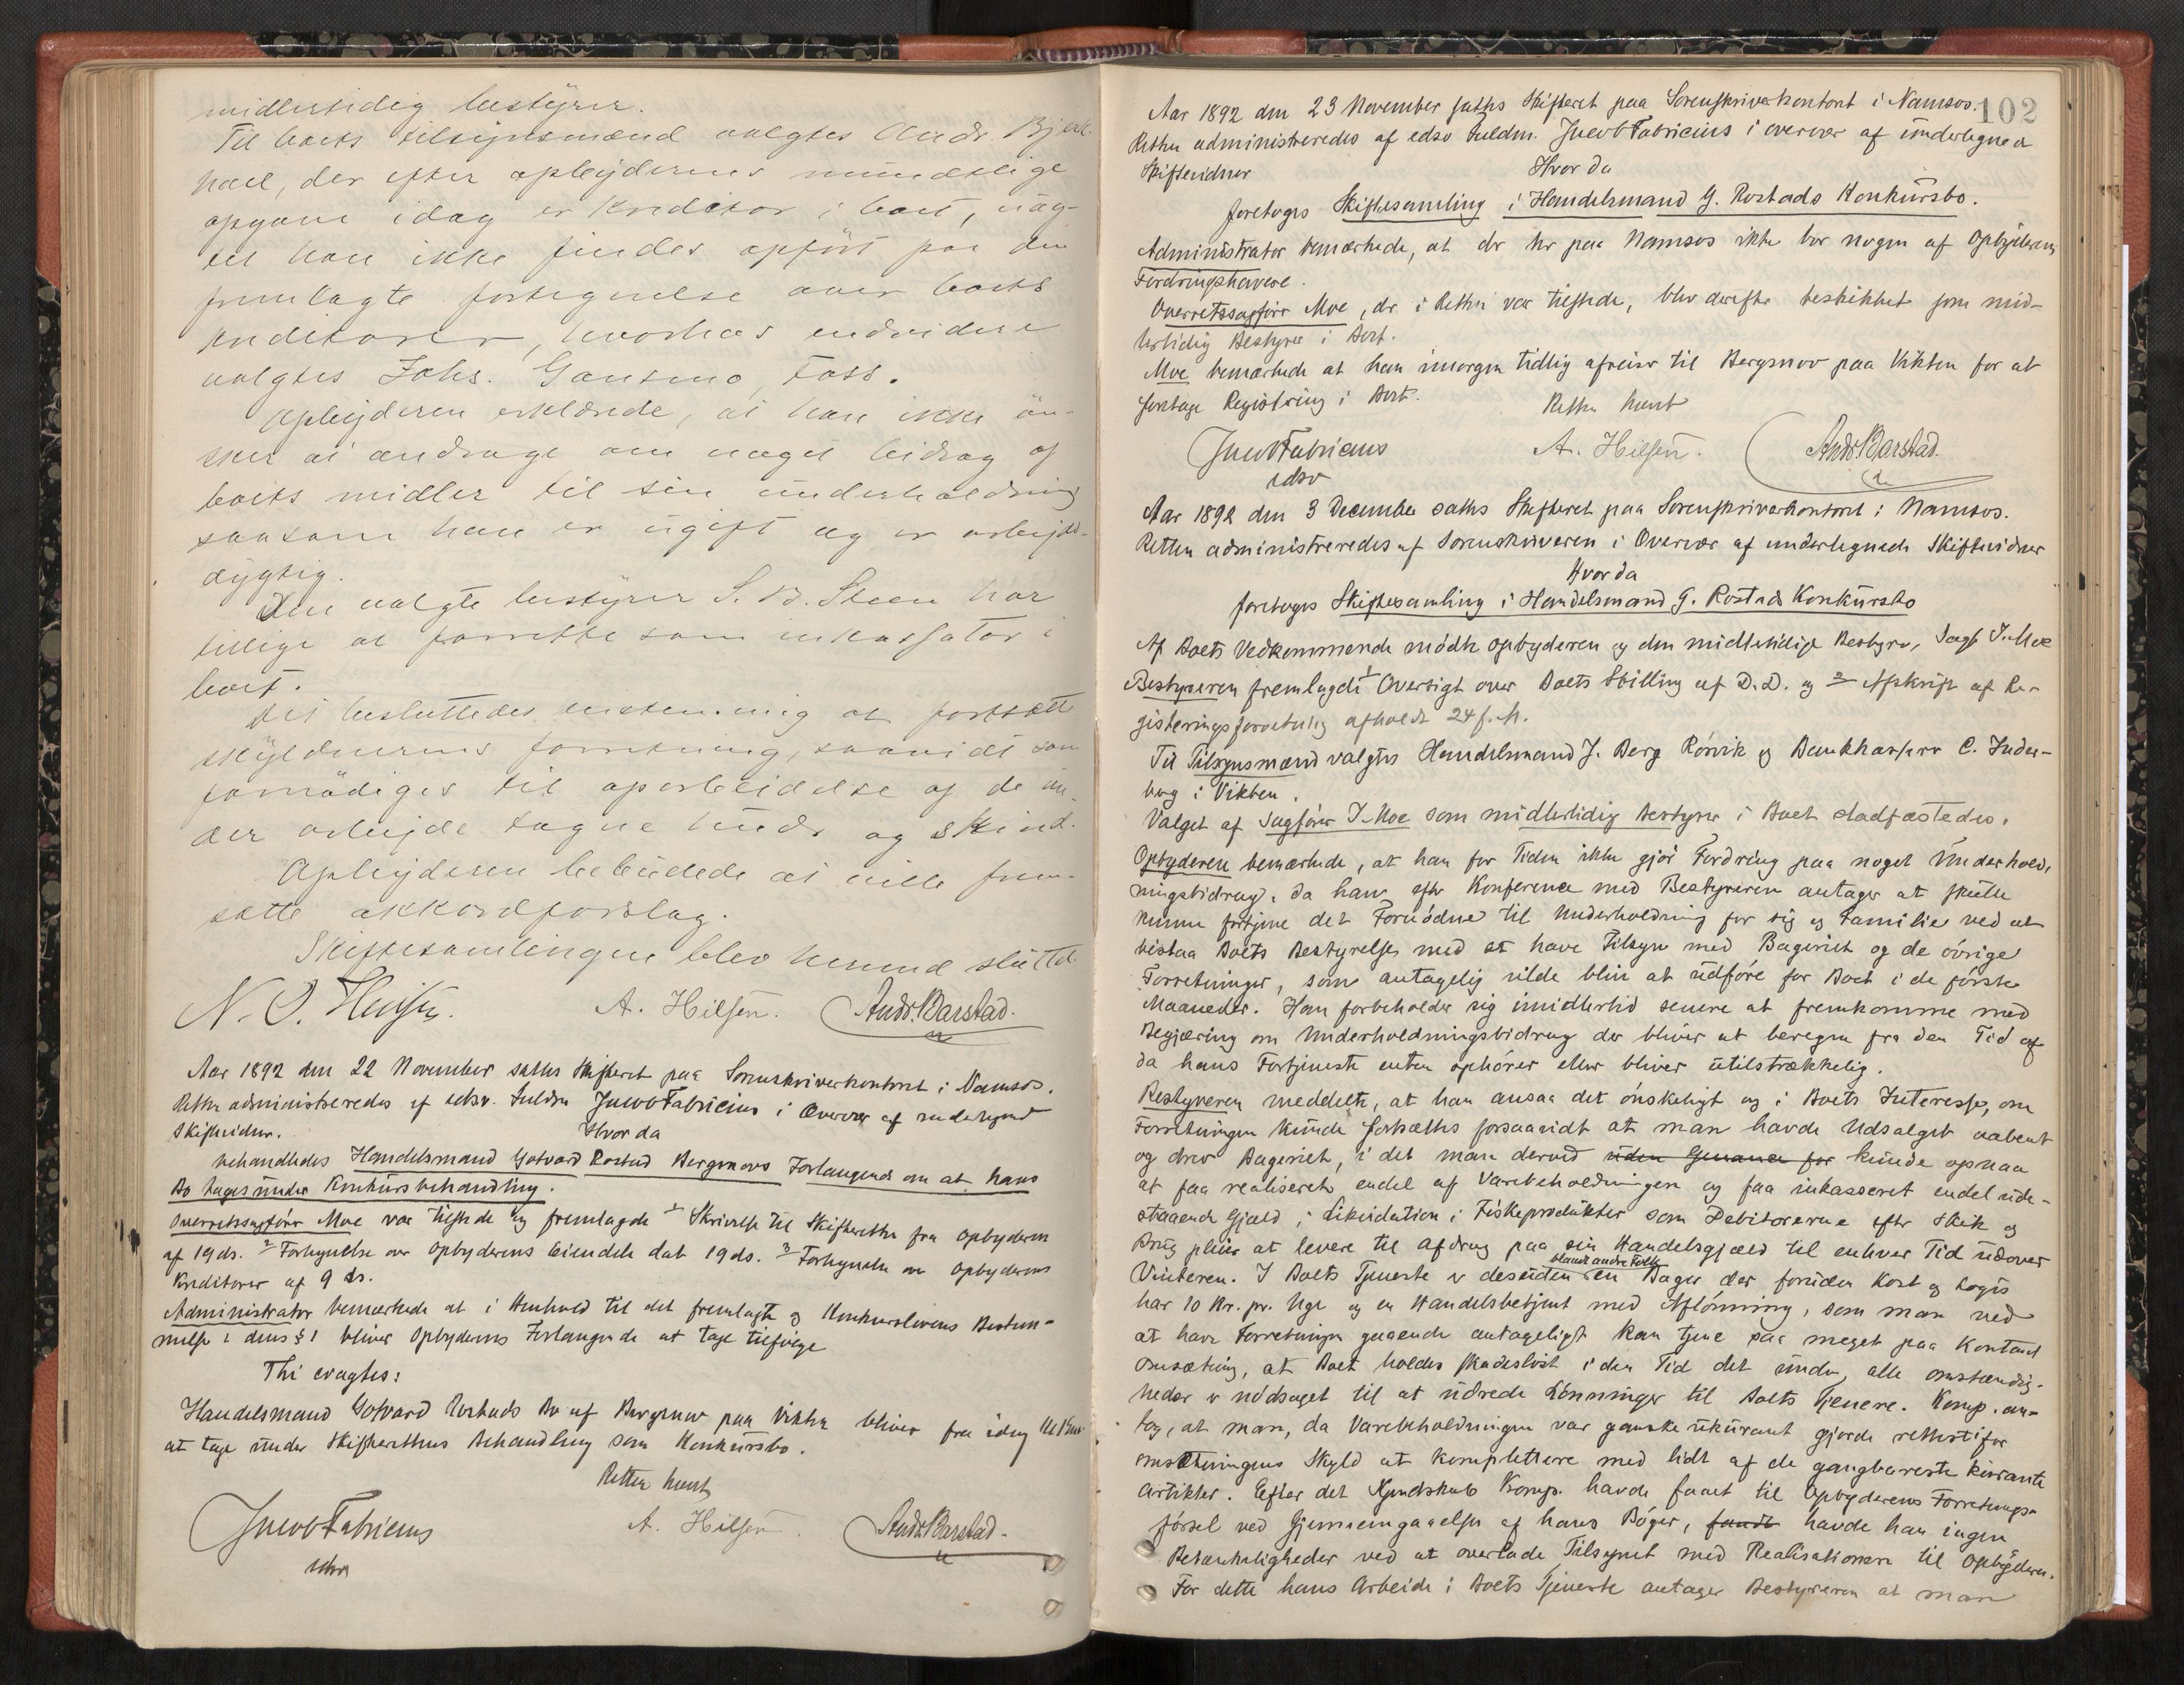 midlertidig bestyrer.
Til boets tilsynsmænd valgtes Andr. Bjerk
hoel, der efter opbyderens mundtlige
opgave idag er kreditor i boet, uag-
tet han ikke findes opført paa den
fremlagte fortegnelse over boets
kreditorer, hvorhos endvidere
valgtes Johs. Gansmo, Foss.
Opbyderen erklærede, at han ikke øn-
sker at andrage om noget bidrag af
boets midler til sin underholdning
saasom han er ugift og er arbejds-
dygtig.
Den valgte bestyrer S. B. Steen har
tillige at forrette som inkassator i
boet.
Det besluttedes enstemmig at fortsætte
skyldnerens forretning, saavidt som
fornødiges til oparbeidelse af de un-
der arbejde tagne huder og skind.
Opbyderen bebudede at ville frem-
sætte akkordforslag.
Skiftesamlingen blev hermed sluttet.
A. Hilsen. Andr. Barstad.
Aar 1892 den 22 November sattes Skifteret paa Sorenskriverkontoret i Namsos.
Retten administreredes af edsv. Fuldm. Jacob Fabricius i Overvær af undertegnede
Skiftevidner.
Hvor da
behandledes Handelsmand Gotvard Rostad Bergsnovs Forlangende om at hans
Bo tages under Konkursbehandling.
Overretssagfører Moe var tilstede og fremlagde 1 Skrivelse til Skifteretten fra Opbyderen
af 19 ds. 2 Fortegnelse over Opbyderens Eiendele dat 19 ds. 3 Fortegnelse over Opbyderens
Kreditorer af 9 ds.
Administrator bemærkede at i Henhold til det fremlagte og Konkurslovens Bestem-
melse i dens § 1 bliver Opbyderens Forlangende at tage tilfølge
Thi eragtes:
Handelsmand Gotvard Rostads Bo af Bergsnov paa Vikten bliver fra idag
at tage under Skifterettens Behandling som Konkursbo.
Retten hævet
Jacob Fabricius A. Hilsen. Andr. Barstad.
edsv
102
Aar 1892 den 23 November sattes Skifteret paa Sorenskriverkontoret i Namsos.
Retten administreredes af edsv Fuldm. Jacob Fabricius i overvær af undertegnede
Skiftevidner
Hvor da
foretoges Skiftesamling i Handelsmand G. Rostads Konkursbo.
Administrator bemærkede, at der her paa Namsos ikke bor nogen af Opbyderens
Fordringshavere.
Overretssagfører Moe, der i Retten var tilstede, blev derefter beskikket som mid-
lertidig Bestyrer i Boet.
Moe bemærkede at han imorgen tidlig afreiser til Bergsnov paa Vikten for at
foretage Registrering i Boet.
Retten hævet
Jacob Fabricius A. Hilsen. Andr. Barstad.
edsv
Aar 1892 den 3 December sattes Skifteret paa Sorenskriverkontoret i Namsos.
Retten administreredes af Sorenskriveren i Overvær af undertegnede Skiftevidner
Hvor da
foretoges Skiftesamling i Handelsmand G. Rostads Konkursbo
Af Boets Vedkommende mødte Opbyderen og den midlertidige Bestyrer, Sagf. I. Moe
Bestyreren fremlagde 1 Oversigt over Boets Stilling af D.D. og 2 Afskrift af Re-
gisteringsforretning afholdt 24 f. M.
Til Tilsynsmænd valgtes Handelsmand J. Berg Rørvik og Bankkasserer C. Inder-
berg i Vikten.
Valget af Sagfører I. Moe som midlertidig Bestyrer i Boet stadfæstedes.
Opbyderen bemærkede, at han for Tiden ikke gjør Fordring paa noget Underhold-
ningsbidrag, da han efter Konference med Bestyreren antager at skulle
kunne fortjene det Fornødne til Underholdning for sig og Familie ved at
bistaa Boets Bestyrelse med at have Tilsyn med Bageriet og de øvrige
Forretninger, som antagelig vilde blive at udføre for Boet i de første
Maaneder. Han forbeholder sig imidlertid senere at fremkomme med
Begjæring om Underholdningsbidrag der bliver at beregne fra den Tid af
da hans Fortjeneste enten ophører eller bliver utilstrækkelig.
Bestyreren meddelte, at han ansaa det ønskeligt og i Boets Interesse, om
Forretningen kunde fortsættes forsaavidt at man havde Udsalget aabent
og drev Bageriet, i det man derved uden Genance for kunde opnaa
at faa realiseret endel af Varebeholdningen og faa inkasseret endel ude-
staaende Gjæld, i Likvidation i Fiskeprodukter som Debitorerne efter Skik og
Brug pleier at levere til Afdrag paa sin Handelsgjæld til enhver Tid udover
Vinteren. I Boets Tjeneste er desuden blandt andre Folk en Bager der foruden Kost og Logis
har 10 Kr. pr. Uge og en Handelsbetjent med Aflønning, som man ved
at have Forretningen gaaende antageligt kan tjene saa meget paa Kontant
Omsætning, at Boet holdes skadesløst i den Tid det under alle omstændig-
heder er nødsaget til at udrede Lønninger til Boets Tjenere. Komp. an-
tog, at man, da Varebeholdningen var ganske ukurant gjorde rettest i for
omsætningens Skyld at komplettere med lidt af de gangbareste kurante
Artikler. Efter det Kjendskab Komp. havde faaet til Opbyderens Forretnings-
førsel ved Gjennemgaaelse af hans Bøger, fandt havde han ingen
Betænkeligheder ved at overlade Tilsynet med Realisationen til Opbyderen.
For dette hans Arbeide i Boets Tjeneste antager Bestyreren at man